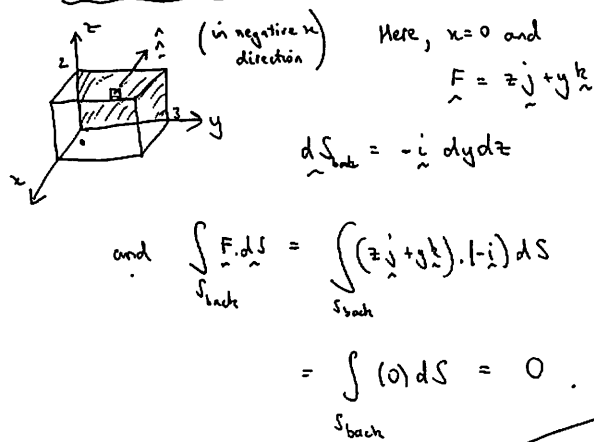 z
n̂
(in negative x direction)
Here, x=0 and
2
F = z j + y k
3
y
x
dS_back = -i dydz
and ∫_{S_back} F.dS = ∫_{S_back} (z j + y k).(-i) dS
= ∫_{S_back} (0) dS = 0.